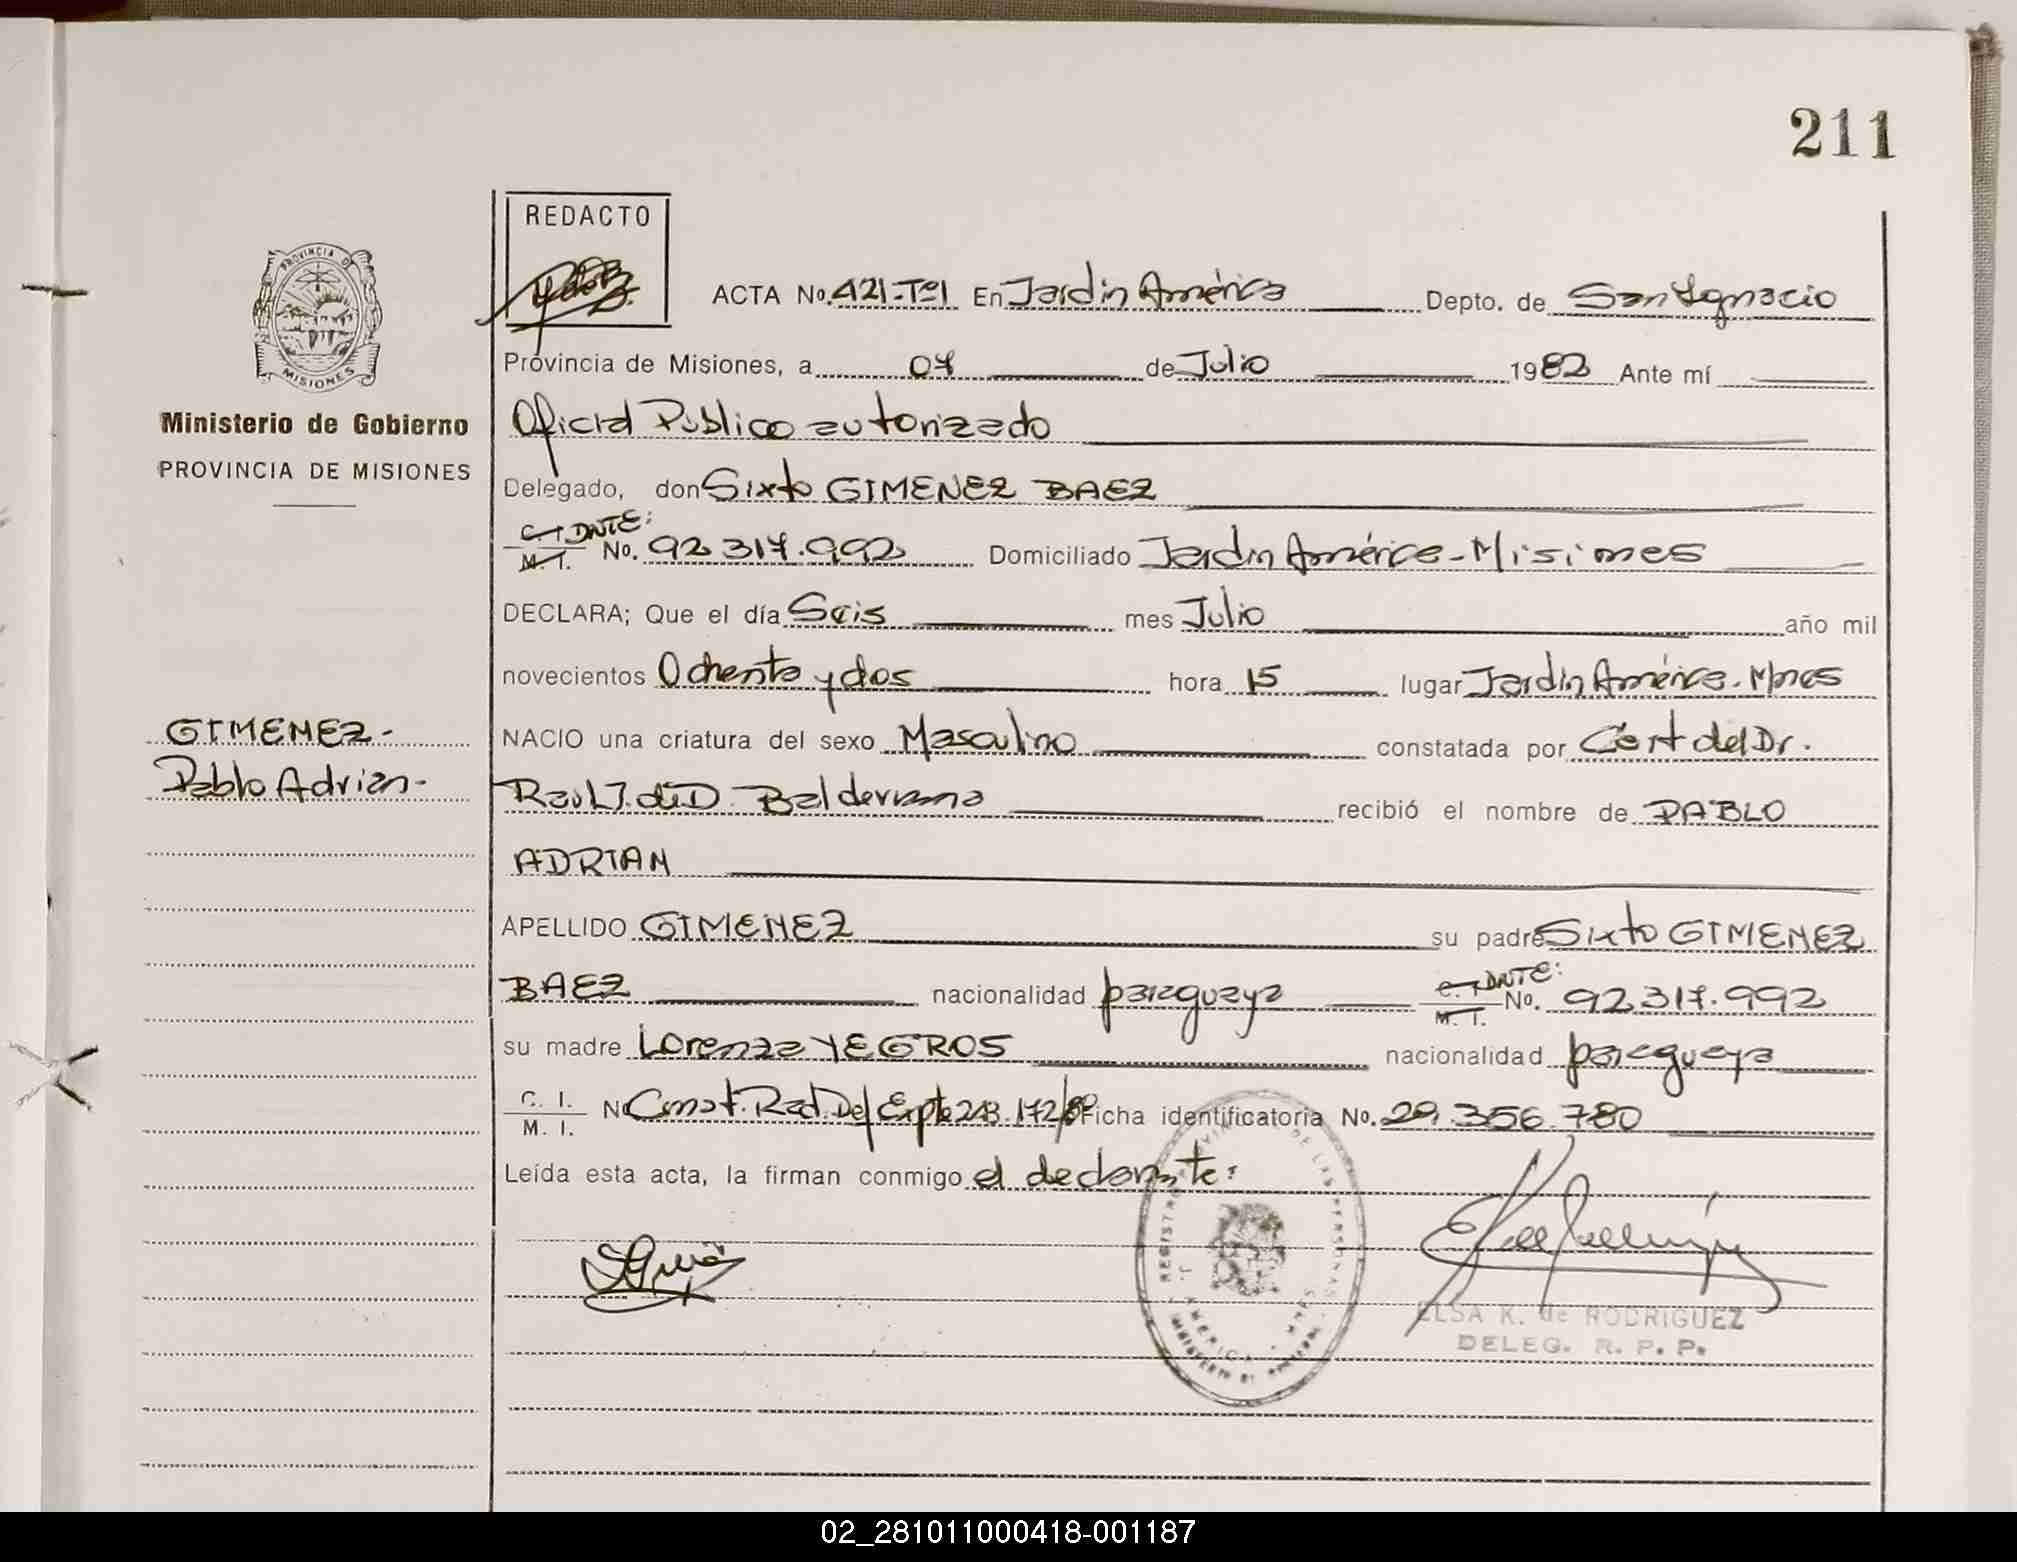 211
REDACTO
ACTA No. 421-Tº1 En Jardín América Depto. de San Ignacio
PROVINCIA DE MISIONES
Provincia de Misiones, a 07 de Julio 1982 Ante mí
Ministerio de Gobierno
PROVINCIA DE MISIONES
Oficial Público autorizado
Delegado, don Sixto GIMENEZ BAEZ
C.I DNTE:
M. I. No. 92.317.992 Domiciliado Jardín América - Misiones
DECLARA; Que el día Seis mes Julio año mil
novecientos Ochenta y dos hora 15 lugar Jardín América. Mnes
GIMENEZ-
Pablo Adrian-
NACIO una criatura del sexo Masculino constatada por Cert del Dr.
Raul J. del D. Balderrama recibió el nombre de PABLO
ADRIAN
APELLIDO GIMENEZ su padre Sixto GIMENEZ
BAEZ nacionalidad paraguaya C.I DNTE: M. I. No. 92.317.992
su madre Lorenza YEGROS nacionalidad paraguaya
C. I.
M. I. No Const. Rad. Def Expte 213.172/80 Ficha identificatoria No. 29.356.780
Leída esta acta, la firman conmigo el declarante:
ELSA K. de RODRIGUEZ
DELEG. R. P. P.
02_281011000418-001187